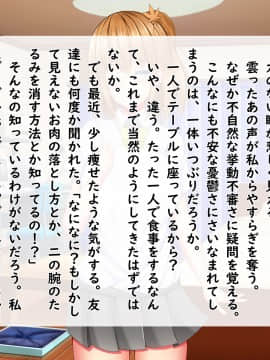 震ったあの声が私からやすらぎを奪う。
なぜか不自然な挙動不審さに疑問を覚える。
こんなにも不安な憂鬱さにさいなまれてし
まうのは、一体いつぶりだろうか。
一人でテーブルに座っているから？
いや、違う。たった一人で食事をするなん
て、これまで当然のようにしてきたはずでは
ないか。
でも最近、少し痩せたような気がする。友
達にも何度か聞かれた。「なになに？もしかし
て見えないお肉の落とし方とか、二の腕のた
るみを消す方法とか知ってるの！？」
そんなの知っているわけがないだろう。私